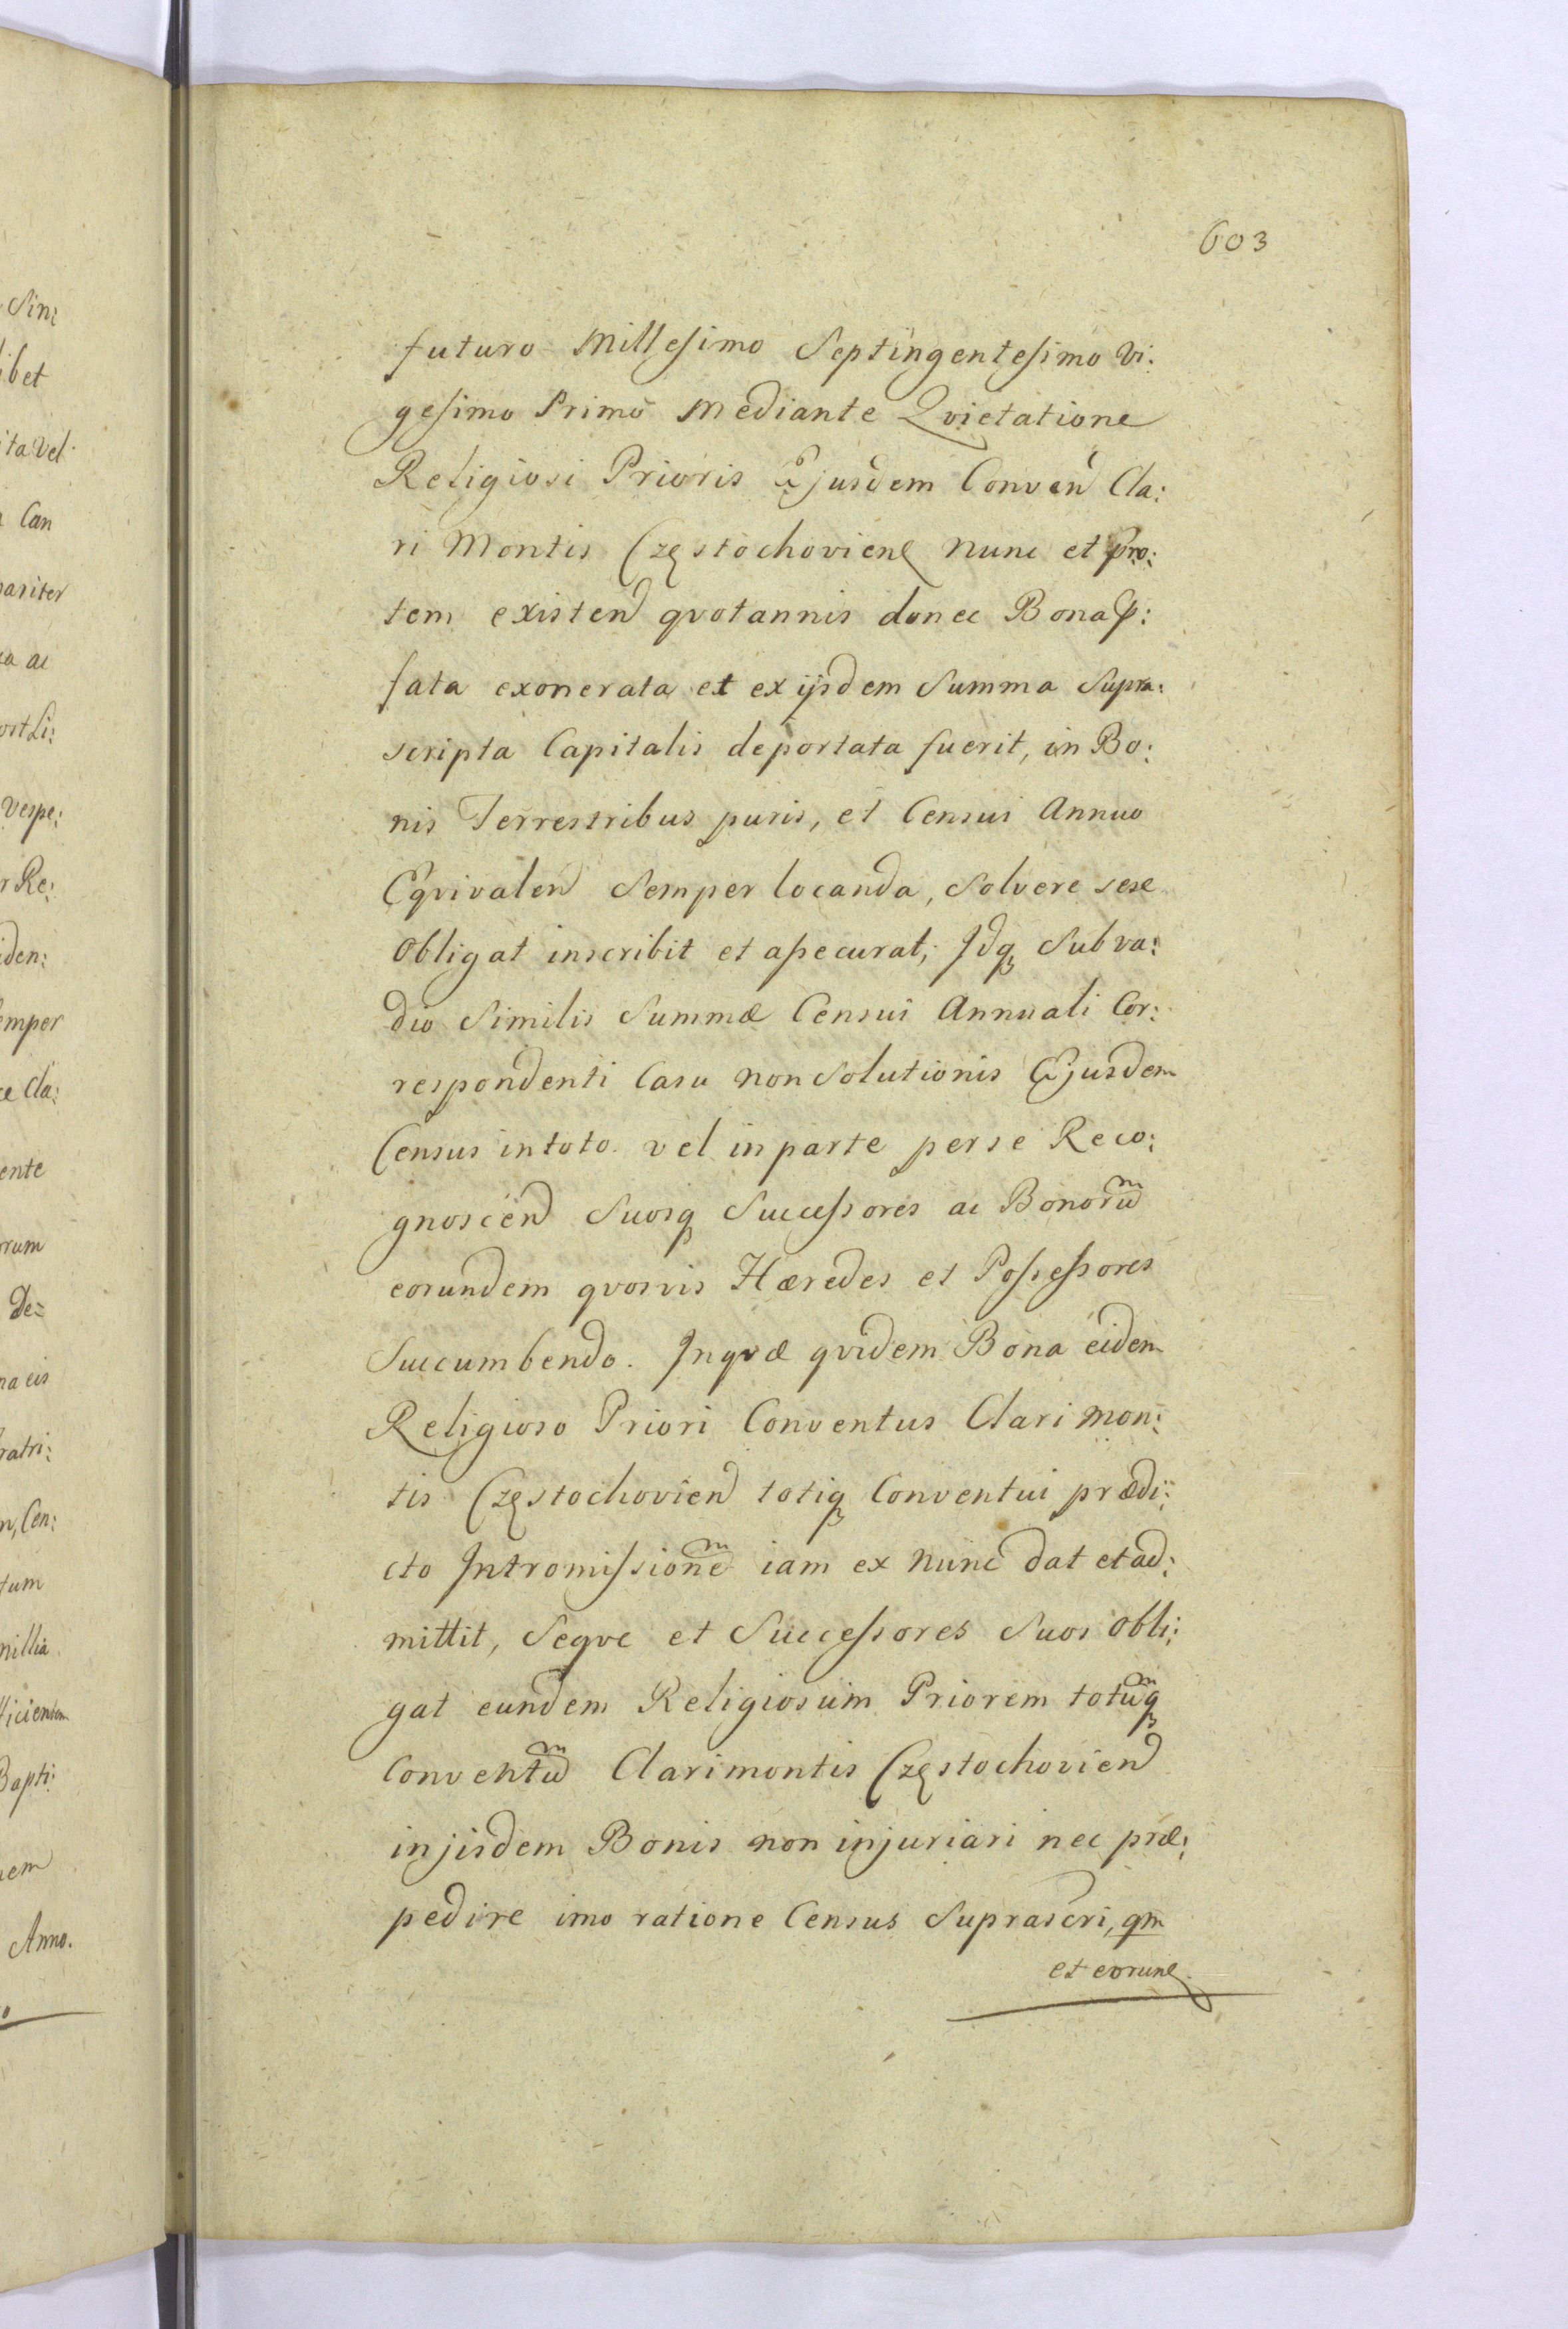 Sin:
ibet
ita vel
Can
pariter
ca ac
ost Li:
Vespe:
r Re:
iden:
emper
ce Cla:
ente
orum
De=
na eis
ratri:
n, Cen:
tum
millia
ficientem
Bapti:
nem
Anno.
603
futuro Millesimo Septingentesimo Vi:
gesimo Primo Mediante Qvietatione
Religiosi Prioris Ejusdem Conven Cla:
ri Montis Częstochovien nunc et pro:
tem existen qvotannis donec Bona p:
fata exonerata et ex ijsdem Summa Supra:
scripta Capitalis deportata fuerit, in Bo:
nis Terrestribus puris, et Censui Annuo
Eqvivalen Semper locanda, Solvere sese
Obligat inscribit et assecurat; Idq Sub va:
dio Similis Summæ Censui Annuali Cor:
respondenti Casu non Solutionis Ejusdem
Census in toto vel in parte per se Reco:
gnoscen Suosq Successores ac Bonorum
eorundem qvosvis Hæredes et Possessores
Succumbendo. In qvæ qvidem Bona eidem
Religioso Priori Conventus Clari Mon:
tis Częstochovien totiq Conventui prædi:
cto Intromissionem iam ex nunc dat et ad:
mittit, Seqve et Successores Suos obli:
gat eundem Religiosum Priorem totumq
Conventum Clarimontis Częstochovien
in jisdem Bonis non injuriari nec præ:
pedire imo ratione Census Suprascri, qm
et eorune